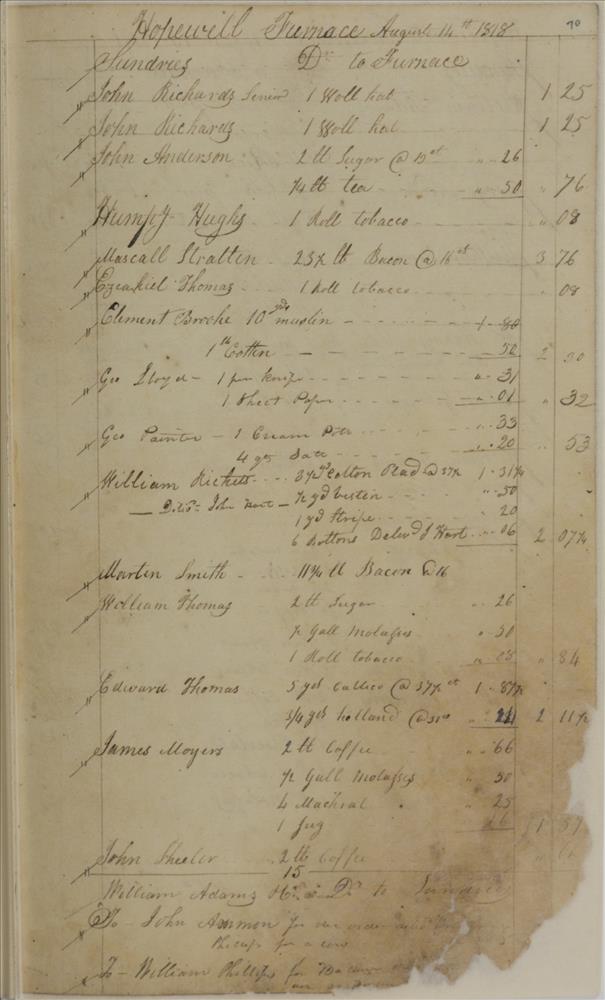 Hopewill Furnace August 14th 1818
70
Sundries Dr to Furnace
John Richards Senior 1 Woll hat 1 25
John Richards 1 Woll hat 1 25
John Anderson 2 lb Sugar @ 13ct " 26
1/4 lb tea " 50 " 76
Humpy Hughs 1 Roll tobacco " 08
Mascall Stratten 23 1/2 lb Bacon @ 16ct 3 76
Ezeakiel Thomas 1 Roll tobacco " 08
Clement Brooke 10 yds muslin 1 80
1 lb Cotten 50 2 30
Geo Lloyd 1 pen knife " 31
1 Sheet Paper " 01 " 32
Geo Painter 1 Cream Pott " 33
4 qts Salt " 20 " 53
William Ricketts 3 1/2 yd Cotton Plad @ 37 1/2 1 31 1/4
John Hart 1/2 yd vestin " 50
1 yd Stripe " 20
6 Bottons Delivd J Hart " 06 2 07 1/4
Martin Smith 11 3/4 lb Bacon @ 16
William Thomas 2 lb Sugar " 26
1/2 Gall Molasses " 50
1 Roll tobacco " 08 " 84
Edward Thomas 5 yds Callico @ 37 1/2 ct 1 87 1/2
3/4 yds holland 2 11 1/2
James Moyers 2 lb Coffee " 66
1/2 Gall Molasses " 50
4 Mackral " 25
1 Jug 1
John Sheeler 2 lb Coffee
15
William Adams Dr to Sundries
To John Ammon for
Phillips for a cow
To William Phillips for